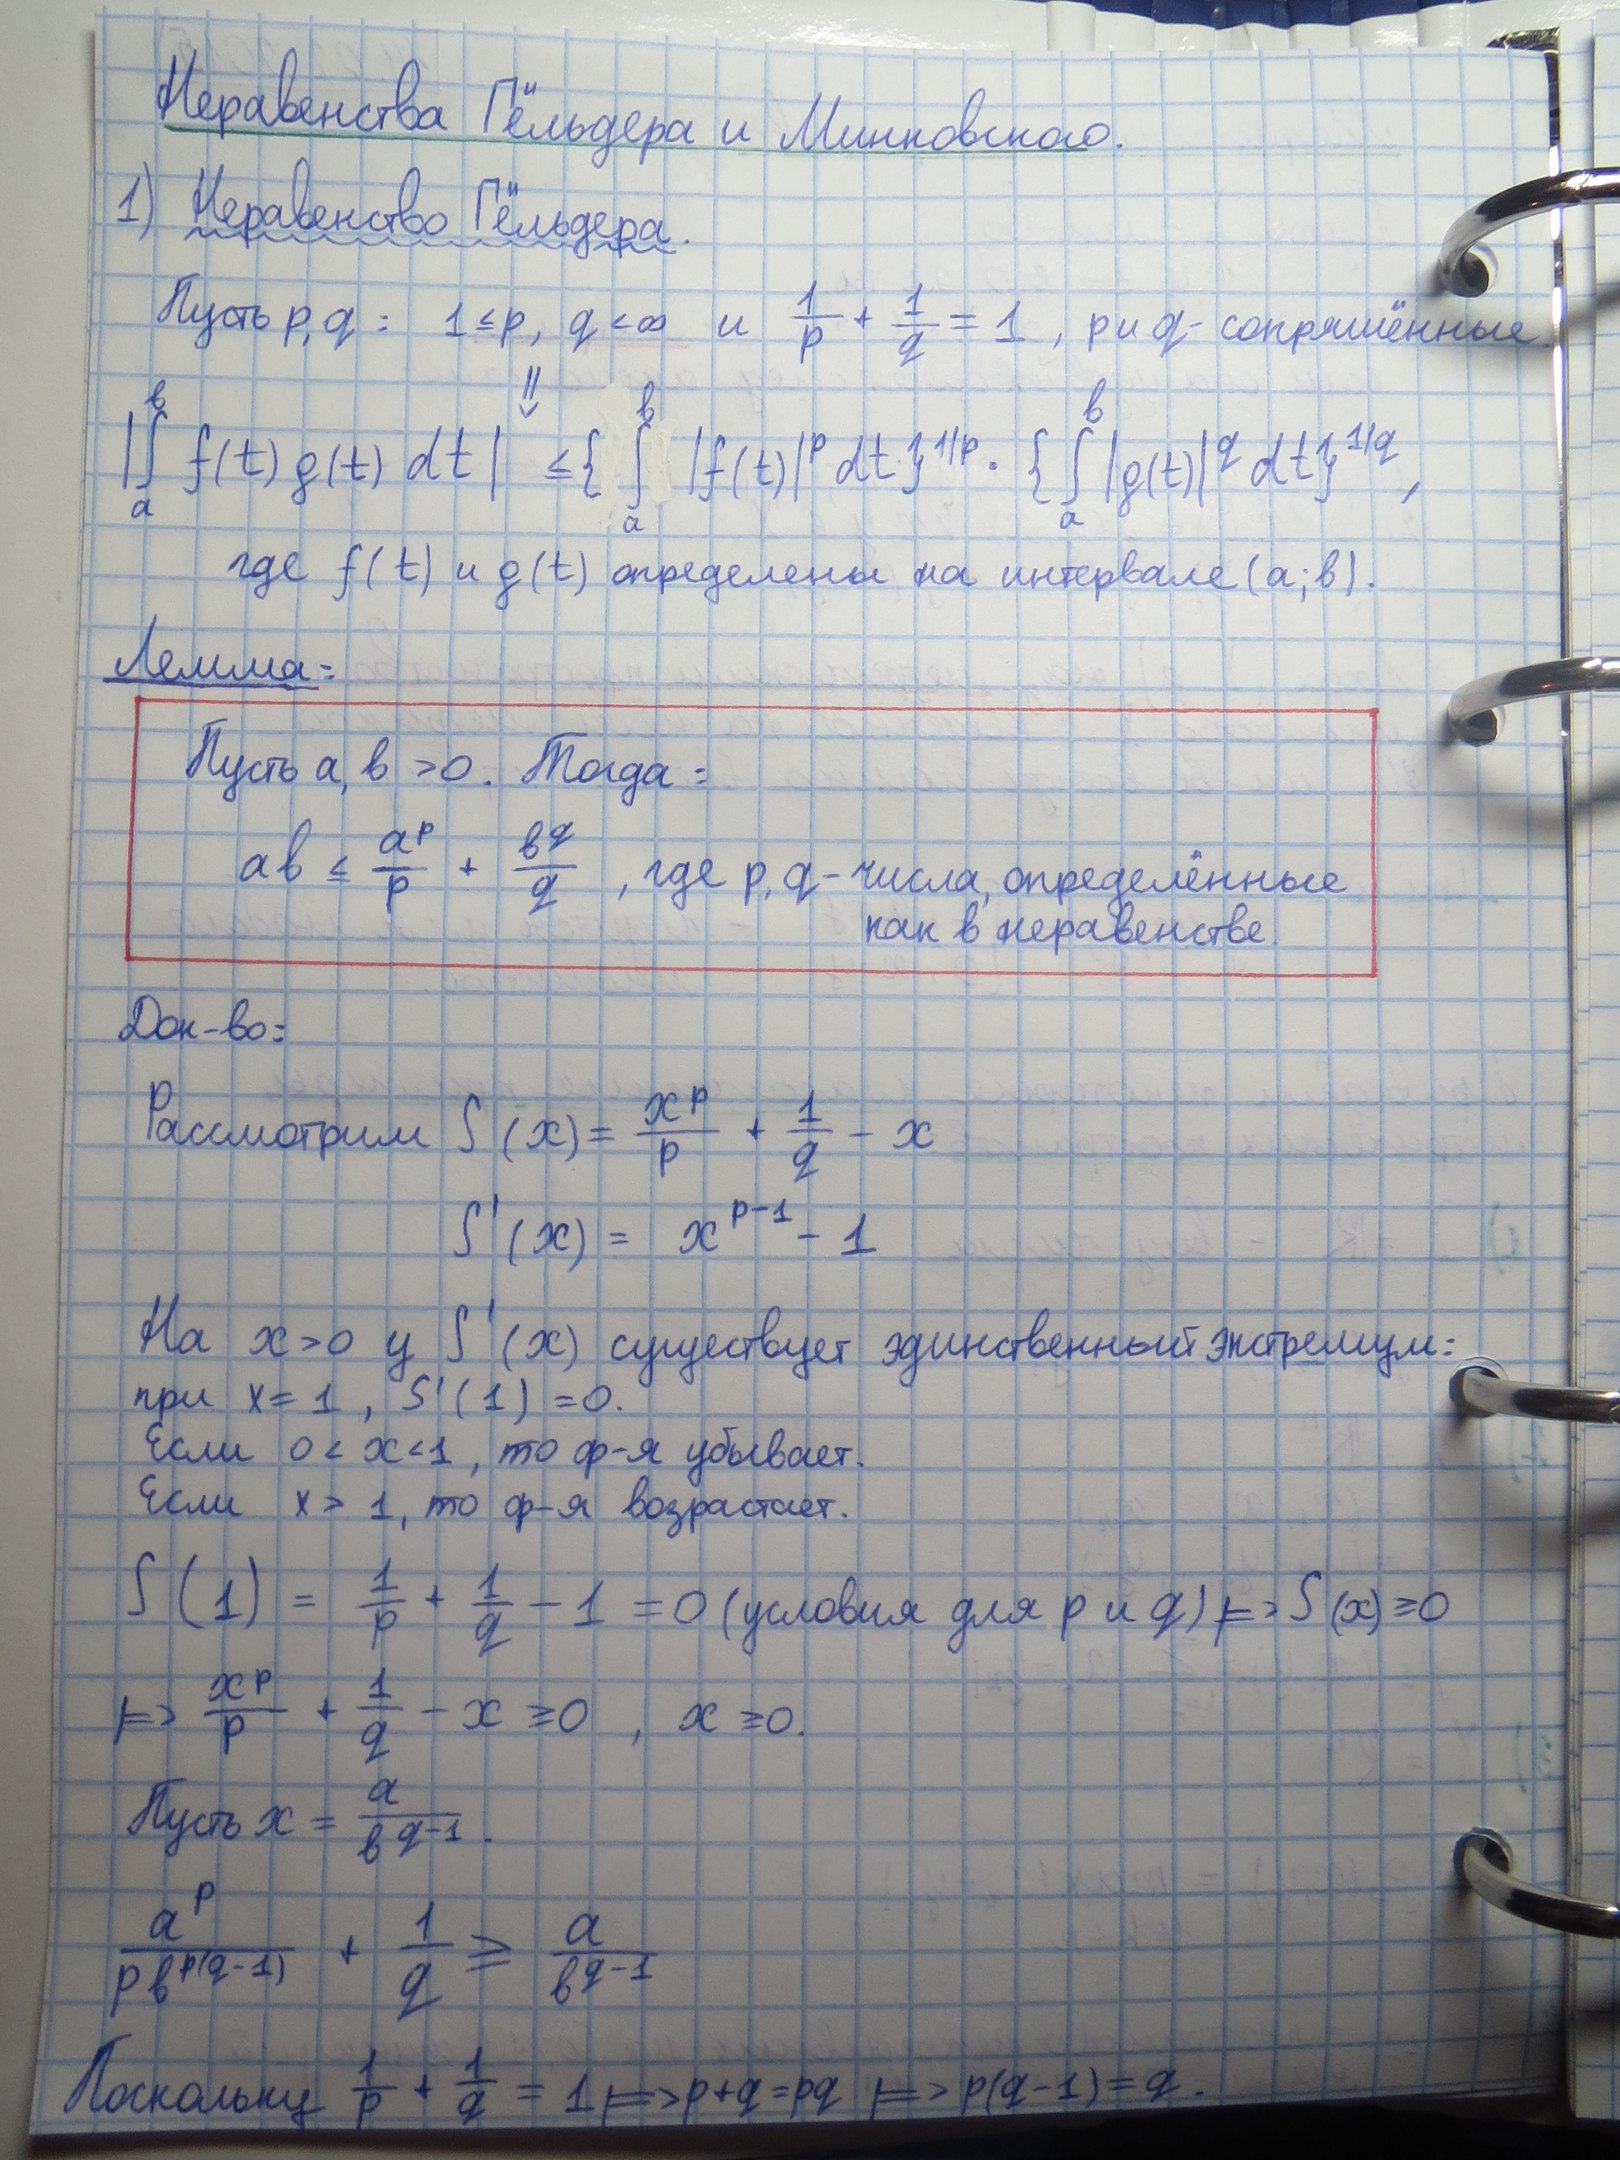 Неравенства Гёльдера и Минковского.
1) Неравенство Гёльдера.
Пусть p, q: 1 ≤ p, q < ∞ и 1/p + 1/q = 1, p и q - сопряжённые.
⇓
|∫ₐᵇ f(t) g(t) dt| ≤ {∫ₐᵇ |f(t)|^p dt}^{1/p} · {∫ₐᵇ |g(t)|^q dt}^{1/q},
где f(t) и g(t) определены на интервале (a; b).
Лемма:
Пусть a, b > 0. Тогда:
ab ≤ a^p/p + b^q/q, где p, q - числа, определённые
как в неравенстве.
Док-во:
Рассмотрим S(x) = x^p/p + 1/q - x
S'(x) = x^{p-1} - 1
На x > 0 у S'(x) существует единственный экстремум:
при x = 1, S'(1) = 0.
Если 0 < x < 1, то ф-я убывает.
Если x > 1, то ф-я возрастает.
S(1) = 1/p + 1/q - 1 = 0 (условия для p и q) |=> S(x) ≥ 0
|=> x^p/p + 1/q - x ≥ 0, x ≥ 0.
Пусть x = a/b^{q-1}.
a^p/(p b^{p(q-1)}) + 1/q ≥ a/b^{q-1}
Поскольку 1/p + 1/q = 1 |=> p+q=pq |=> p(q-1)=q.